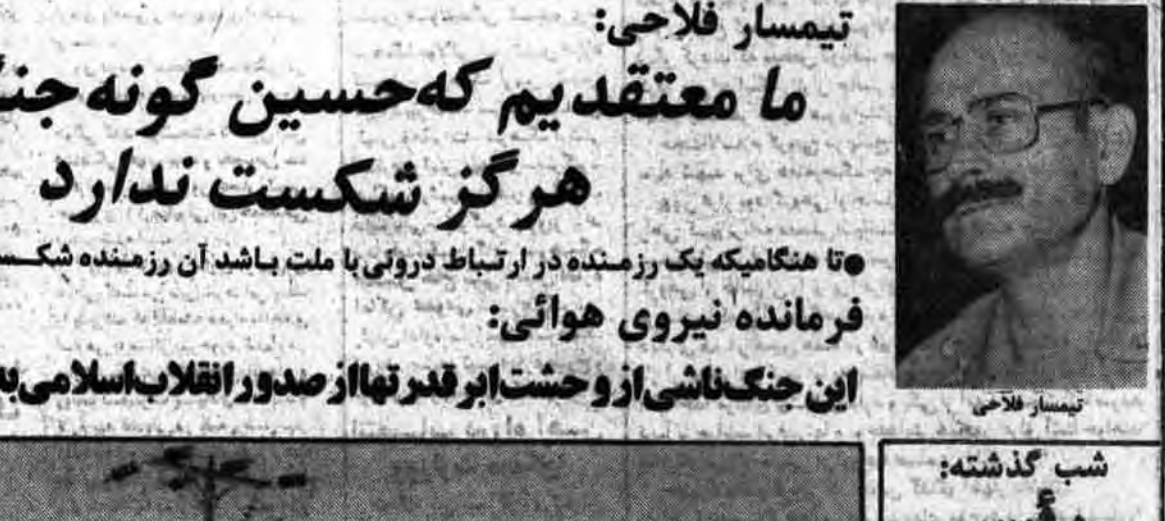 تیمسار فلاحی:
ما معتقدیم که‌حسین گونه جنگ
هرگز شکست ندارد
●تا هنگامیکه یک رزمنده در ارتباط درونی با ملت باشد آن رزمنده
فرمانده نیروی هوائی:
این جنگ ناشی از وحشت ابرقدرتها از صدور انقلاب اسلامی
تیمسار فلاحی
شب گذشته: